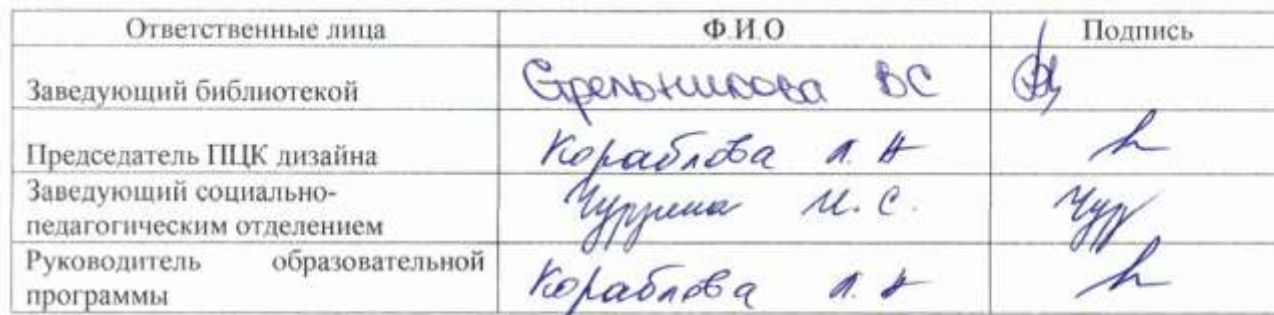 Ответственные лица Ф.И.О Подпись
Заведующий библиотекой Стрельникова ВС
Председатель ПЦК дизайна Кораблова Л. Н
Заведующий социально-
педагогическим отделением И. С.
Руководитель образовательной
программы Кораблова Л. Н